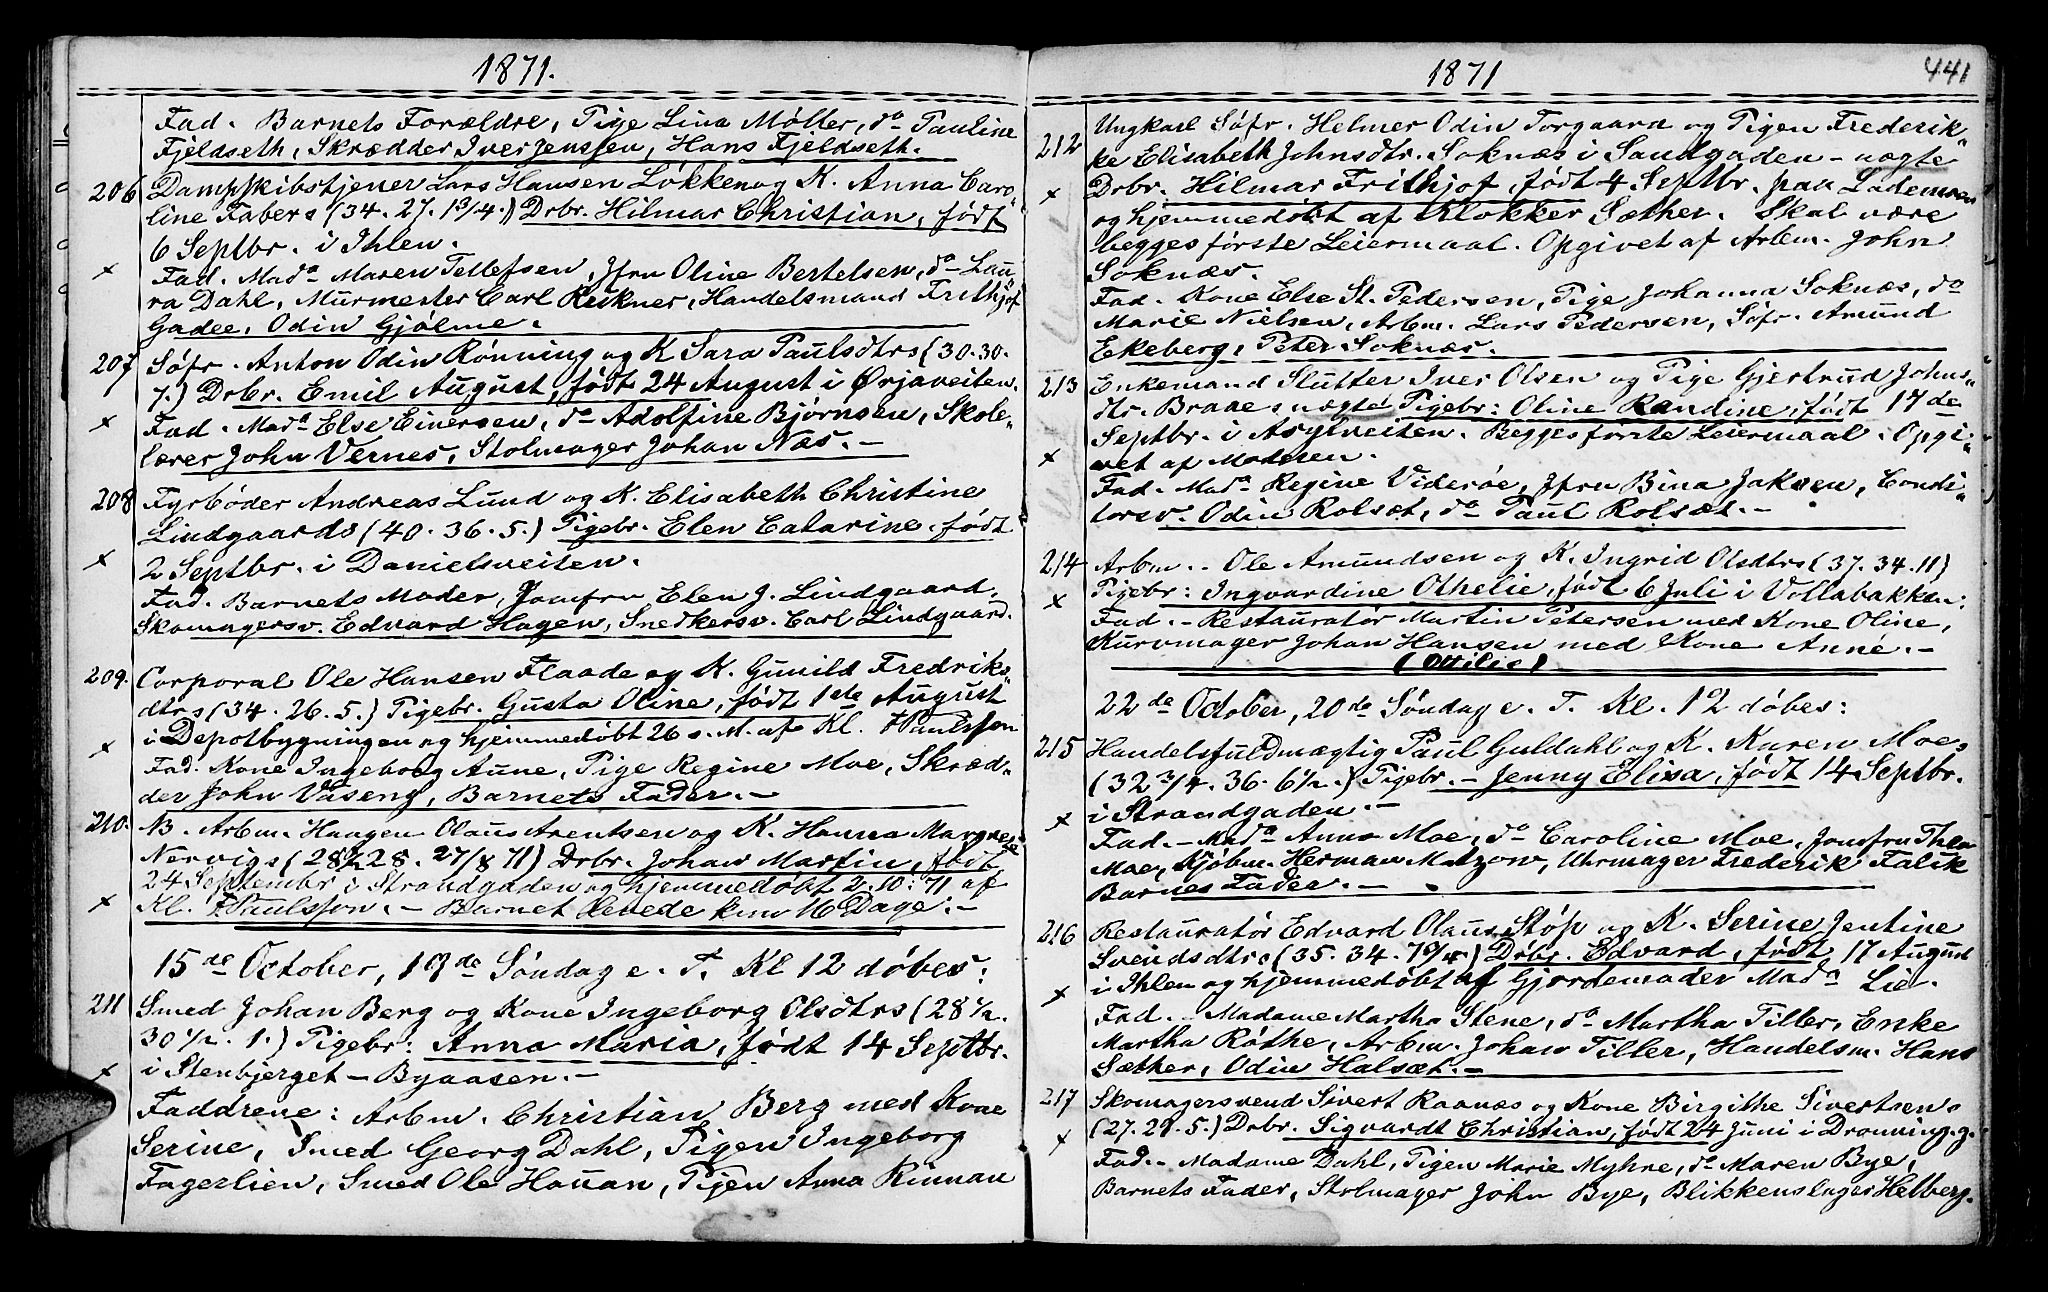 1871.
Fad. Barnets Forældre, Pige Lina Møller, do Pauline
Fjeldseth, Skrædder Iver Jenssen, Hans Fjeldseth.
206 Dampskibstjener Lars Hansen Løkken og K. Anna Caro-
line Fabers (34. 27. 1 3/4.) Drbr. Hilmar Christian, født
6 Septbr. i Ihlen.
x Fad. Mada Maren Tellefsen, Jfru Oline Bertelsen, do Lau-
ra Dahl, Murmester Carl Reikner, Handelsmand Frithjof
Gadee, Odin Gjølme.
207 Søfr. Anton Odin Rønning og K Sara Paulsdtrs (30. 30.
7.) Drbr. Emil August, født 24 August i Ørjaveiten.
x Fad. Mada Else Einersen, do Adolfine Bjørnsen, Skole-
lærer John Vernes, Stolmager Johan Næs. –
208 Fyrbøder Andreas Lund og K. Elisabeth Christine
Lindgaards (40. 36. 5.) Pigebr. Elen Catarine, født
x 2 Septbr. i Danielsveiten.
Fad. Barnets Moder, Jomfru Elen J. Lindgaard,
Skomagersv. Edvard Hagen, Snedkersv. Carl Lindgaard.
209. Corporal Ole Hansen Flaade og K. Gunild Fredriks-
dtrs (34. 26. 5.) Pigebr. Gusta Oline, født 1ste August
x i Depotbygningen og hjemmedøbt 26 s. M. af Kl. F Paulsson
Fad. Kone Ingeborg Aune, Pige Regine Moe, Skræd-
der John Vaseng, Barnets Fader. –
210. N. Arbm. Haagen Olaus Arentsen og K. Hanna Margrete
Nervigs (28½ 28. 27/8 71) Drbr. Johan Martin, født
24 September i Strandgaden og hjemmedøbt 2. 10: 71 af
x Kl. F Paulsson. – Barnet levede kun 16 Dage. –
15de October, 19de Søndag e. T. Kl 12 døbes:
211 Smed Johan Berg og Kone Ingeborg Olsdtrs (28½.
30½. 1.) Pigebr: Anna Maria, født 14 Septbr.
x i Stenbjerget – Byaasen. –
Faddrene: Arbm. Christian Berg med Kone
Serine, Smed Georg Dahl, Pigen Ingeborg
Fagerlien, Smed Ole Hauan, Pigen Anna Rinnan
1871 441
212 Ungkarl Søfr. Helmer Odin Torgaard og Pigen Frederik-
ke Elisabeth Johnsdtr. Soknæs i Sandgaden – uægte
x Drbr. Hilmar Frithjof, født 4 Septbr. paa Lademoen
og hjemmedøbt af Klokker Sæther. Skal være
begges første Leiermaal. Opgivet af Arbm. John
Soknæs.
Fad. Kone Else St. Pedersen, Pige Johanna Soknæs, do
Marie Nielsen, Arbm. Lars Pedersen, Søfr. Amund
Ekeberg, Peter Soknæs.
213 Enkemand Slutter Iver Olsen og Pige Gjertrud Johns-
dtr. Braaes uægte Pigebr: Oline Randine, født 17de
Septbr. i Asylveiten. Begges første Leiermaal. Opgi-
x vet af Moderen.
Fad. Mada Regine Viderøe, Jfru Bina Jaksen, Condi-
torsv. Odin Rolsæt, do Paul Rolsæt. –
214 Arbm. Ole Amundsen og K. Ingrid Olsdtrs (37. 34. 11)
x Pigebr: Ingvardine Othelie, født 6 Juli i Vollabakken:
Fad. – Restauratør Martin Petersen med Kone Oline,
Kurvmager Johan Hansen med Kone Anne. –
(Ottilie)
22de October, 20de Søndag e. T. Kl. 12 døbes:
215 Handelsfuldmægtig Paul Guldahl og K. Karen Moe.
(32 3/4. 36. 6½.) Pigebr. – Jenny Elisa, født 14 Septbr.
x i Strandgaden. –
Fad. – Mada Anna Moe, do Caroline Moe, Jomfru Thea
Moe, Kjøbm. Herman Matzow, Uhrmager Frederik Falik
Barnes Fader. –
216 Restauratør Edvard Olaus Støp og K. Serine Jentine
Svendsdtrs (35. 34. 7 0/4.) Drbr. Edvard, født 17 August
x i Ihlen og hjemmedøbt af Gjordemoder Mada Lie.
Fad. – Madame Martha Stene, do Martha Tiller, Enke
Martha Røthe, Arbm. Johan Tiller, Handelsm. Hans
Sæther, Odin Halsæt. –
217 Skomagersvend Sivert Raanæs og Kone Birgithe Sivertsens
x (27. 29. 5.) Drbr. Sigvardt Christian, født 24 Juni i Dronning. g.
Fad. – Madame Dahl, Pigen Marie Myhre, do Maren Bye,
Barnets Fader, Stolmager John Bye, Blikkenslager Helberg.